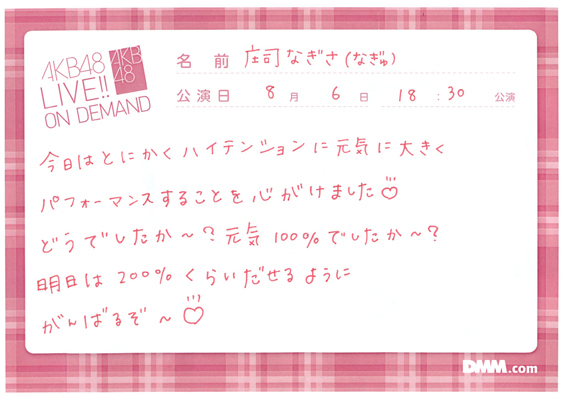 AKB48
LIVE!!
ON DEMAND
AKB
48
名前 庄司なぎさ(なぎゅ)
公演日 8月 6日 18:30 公演
今日はとにかくハイテンションに元気に大きく
パフォーマンスすることを心がけました♡
どうでしたか〜?元気100%でしたか〜?
明日は200%くらいだせるように
がんばるぞ〜♡
DMM.com